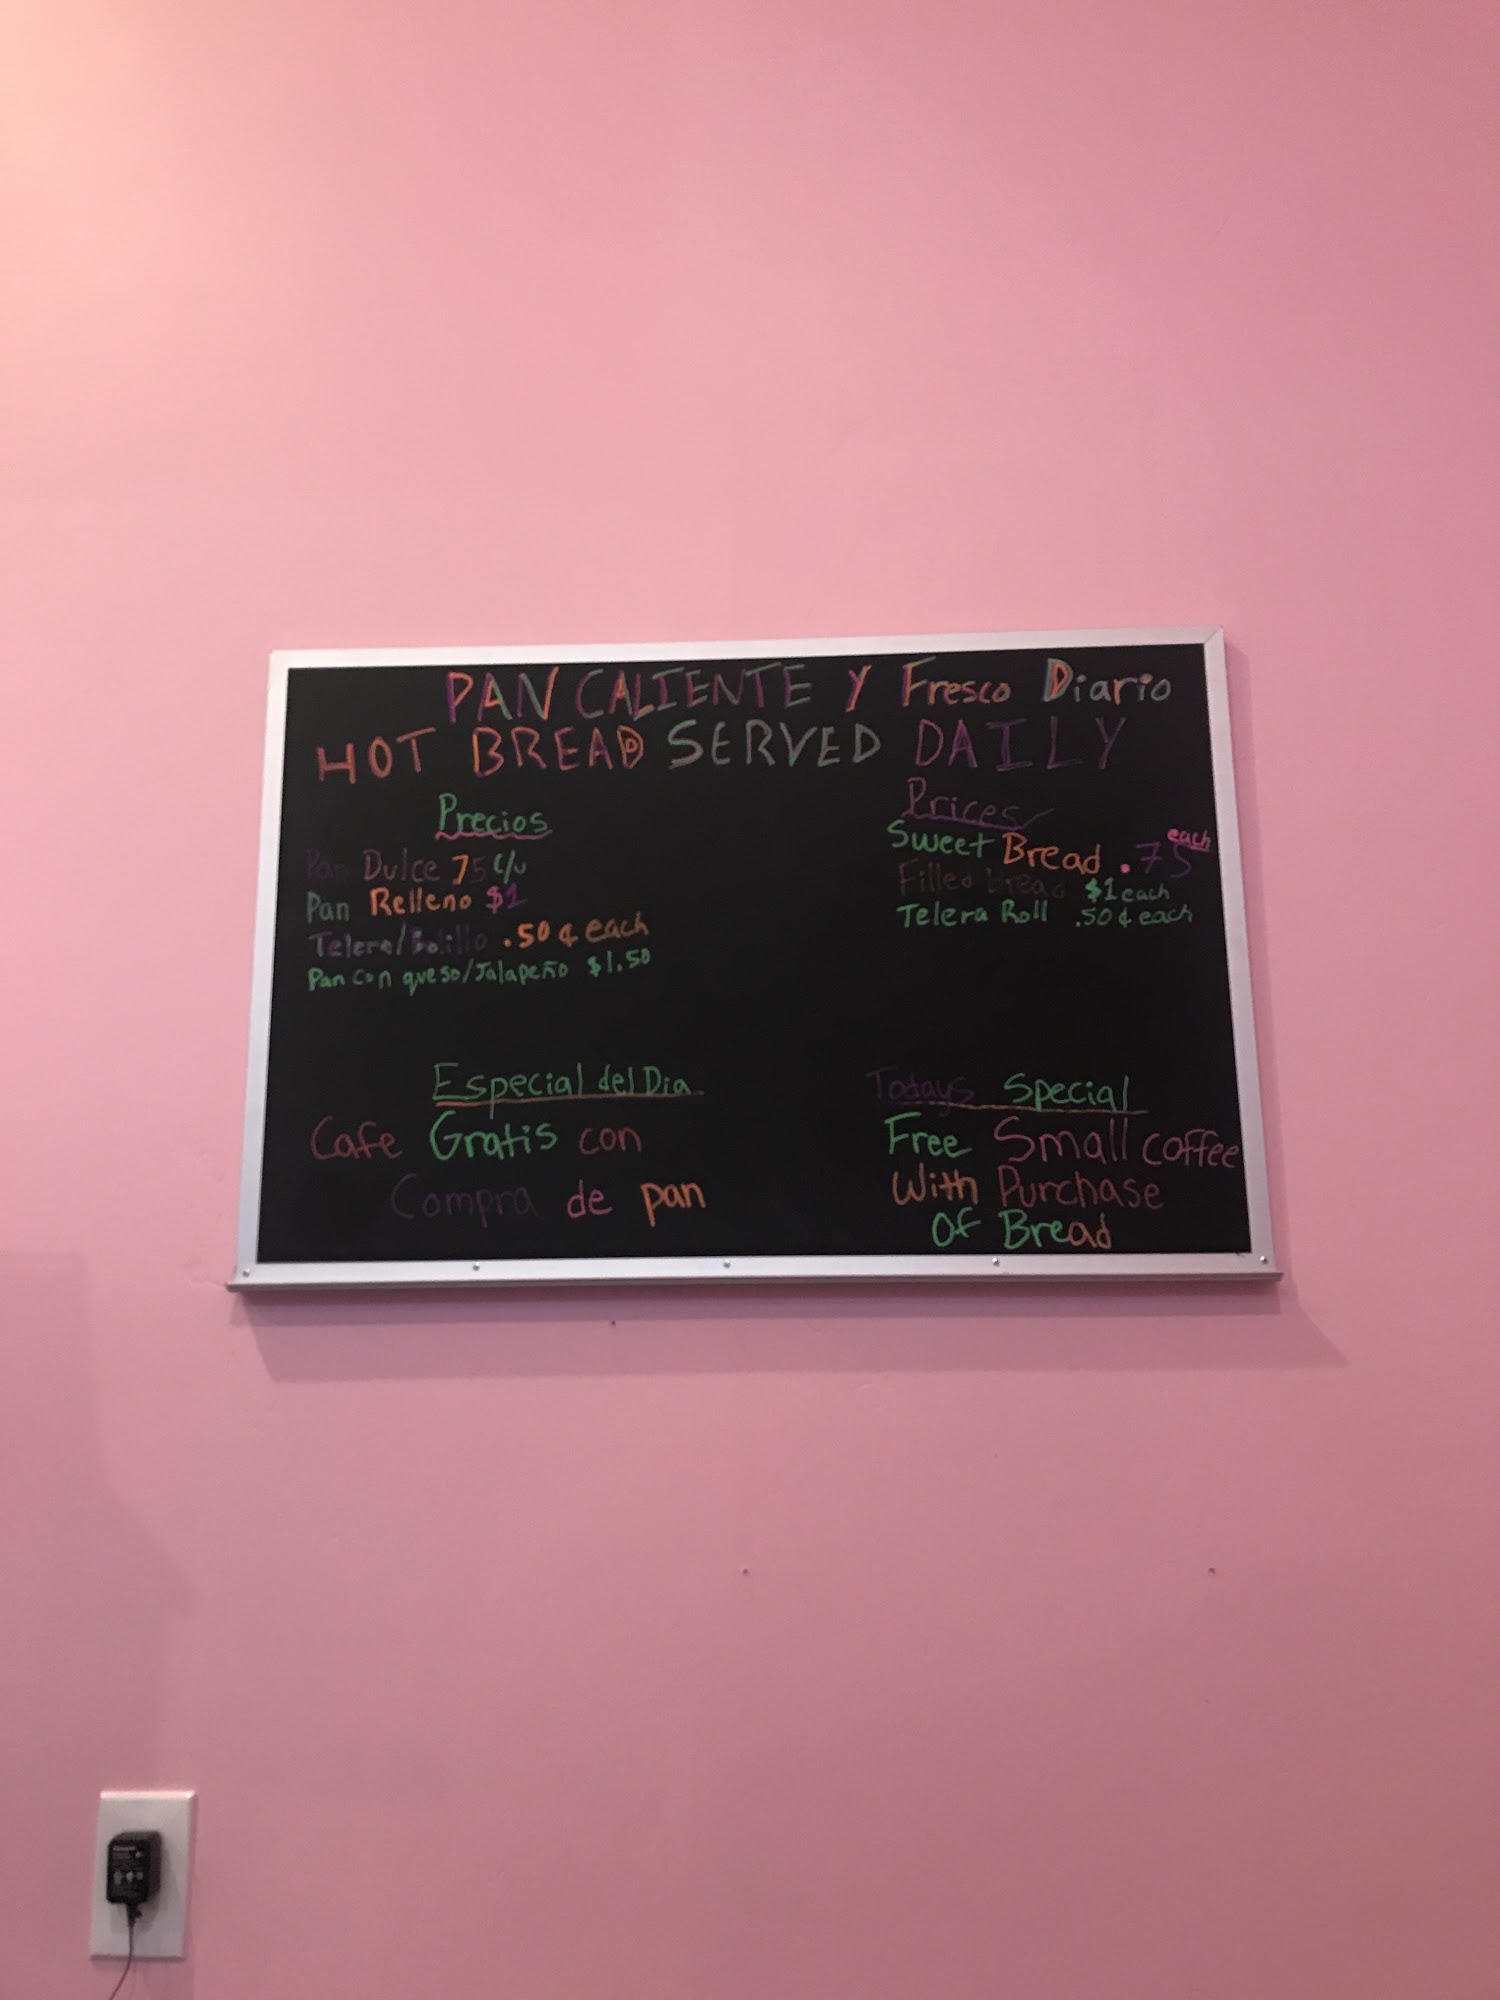 PAN CALIENTE Y Fresco Diario
HOT BREAD SERVED DAILY
Precios
Pan Dulce 75 c/u
Pan Relleno $1
Telera/Bolillo .50¢ each
Pan con queso/Jalapeño $1.50
Prices
Sweet Bread .75 each
Filled bread $1 each
Telera Roll .50¢ each
Especial del Dia
Cafe Gratis con
Compra de pan
Todays Special
Free Small coffee
With Purchase
Of Bread